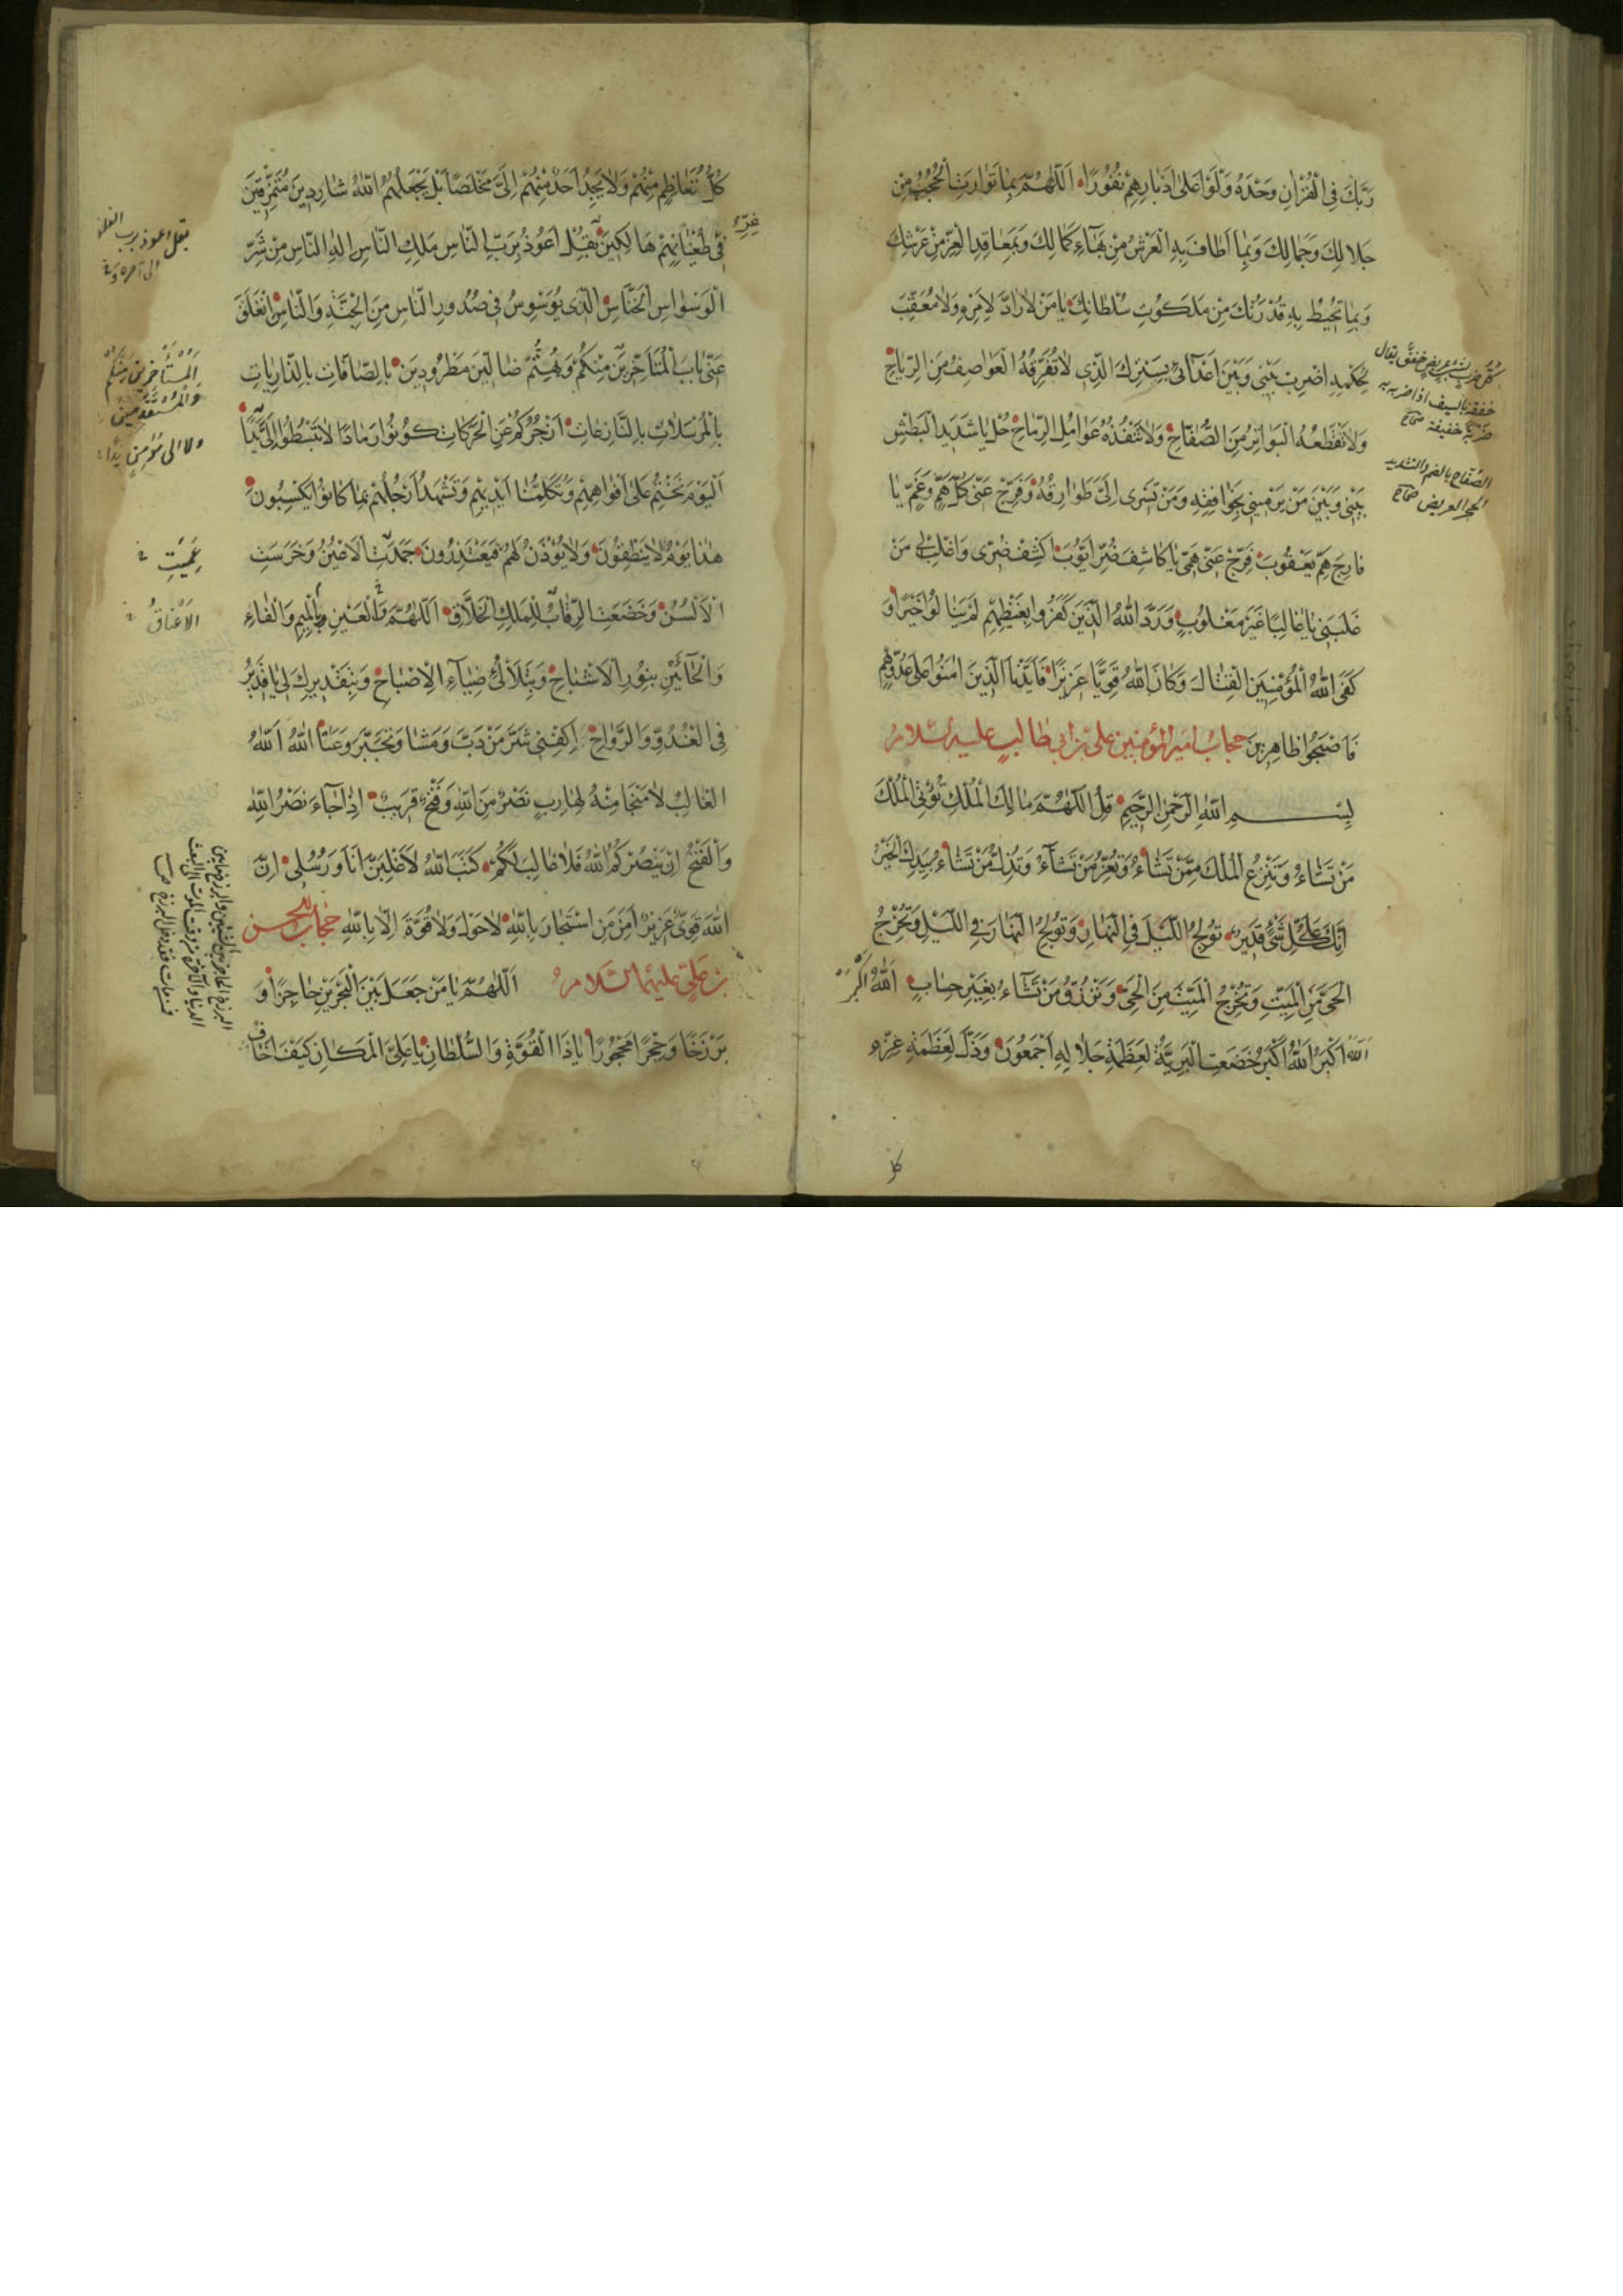 رَبَّكَ فِی الْقُرْاٰنِ وَحْدَهُ وَلَّوْا عَلٰی اَدْبَارِهِمْ نُفُورًا اَللّٰهُمَّ بِمَا تَوَارَتْ اَلْحُجُبُ مِنْ
جَلَالِكَ وَجَمَالِكَ وَبِمَا اَطَافَ بِهِ الْعَرْشُ مِنْ بَهَاۤءِ كَمَالِكَ وَبِمَعَاقِدِ الْعِزِّ مِنْ عَرْشِكَ
وَبِمَا تُحِيطُ بِهِ قُدْرَتُكَ مِنْ مَلَكُوتِ سُلْطَانِكَ يَا مَنْ لَا رَادَّ لِاَمْرِهِ وَلَا مُعَقِّبَ
لِحُكْمِهِ اِضْرِبْ بَيْنِی وَبَيْنَ اَعْدَاۤئِی بِسِتْرِكَ الَّذِی لَا تُفَرِّقُهُ الْعَوَاصِفُ مِنَ الرِّيَاحِ
وَلَا تَقْطَعُهُ الْبَوَاتِرُ مِنَ الصُّفَّاحِ وَلَا تَنْفُذُهُ عَوَامِلُ الرِّمَاحِ حُلْ يَا شَدِيدَ الْبَطْشِ
بَيْنِی وَبَيْنَ مَنْ يَرْمِينِی بِخَوَافِقِهِ وَمَنْ تَسْرِی اِلَیَّ طَوَارِقُهُ وَفَرِّجْ عَنِّی كُلَّ هَمٍّ وَغَمٍّ يَا
فَارِجَ هَمِّ يَعْقُوبَ فَرِّجْ عَنِّی هَمِّی يَا كَاشِفَ ضُرِّ اَيُّوبَ اكْشِفْ ضُرِّی وَاغْلِبْ لِی مَنْ
غَلَبَنِی يَا غَالِبًا غَيْرَ مَغْلُوبٍ وَرَدَّ اللّٰهُ الَّذِينَ كَفَرُوا بِغَيْظِهِمْ لَمْ يَنَالُوا خَيْرًا وَ
كَفَی اللّٰهُ الْمُؤْمِنِينَ الْقِتَالَ وَكَانَ اللّٰهُ قَوِيًّا عَزِيزًا فَاَيَّدْنَا الَّذِينَ اٰمَنُوا عَلٰی عَدُوِّهِمْ
فَاَصْبَحُوا ظَاهِرِينَ حجابُ امیر المؤمنین علی بن ابی طالب علیه السّلام
بِسْمِ اللّٰهِ الرَّحْمٰنِ الرَّحِيمِ قُلِ اللّٰهُمَّ مَالِكَ الْمُلْكِ تُؤْتِی الْمُلْكَ
مَنْ تَشَاۤءُ وَتَنْزِعُ الْمُلْكَ مِمَّنْ تَشَاۤءُ وَتُعِزُّ مَنْ تَشَاۤءُ وَتُذِلُّ مَنْ تَشَاۤءُ بِيَدِكَ الْخَيْرُ
اِنَّكَ عَلٰی كُلِّ شَیْءٍ قَدِيرٌ تُولِجُ اللَّيْلَ فِی النَّهَارِ وَتُولِجُ النَّهَارَ فِی اللَّيْلِ وَتُخْرِجُ
الْحَیَّ مِنَ الْمَيِّتِ وَتُخْرِجُ الْمَيِّتَ مِنَ الْحَیِّ وَتَرْزُقُ مَنْ تَشَاۤءُ بِغَيْرِ حِسَابٍ اَللّٰهُ اَكْبَرُ
اللّٰهُ اَكْبَرُ اللّٰهُ اَكْبَرُ خَضَعَتِ الْبَرِيَّةُ لِعَظَمَةِ جَلَالِهِ اَجْمَعُونَ وَذَلَّ لِعَظَمَةِ عِزِّهِ
خفق يقال
خفقه بالسيف اذا ضربه به
ضربة خفيفة صحاح
الصفاح بالضم والتشديد
الحجر العريض صحاح
كُلُّ مُتَعَاظِمٍ مِنْهُمْ وَلَا يَجِدُ اَحَدٌ مِنْهُمْ اِلَیَّ مَخْلَصًا بَلْ يَجْعَلُهُمُ اللّٰهُ شَارِدِينَ مُتَمَزِّقِينَ
فِی طُغْيَانِهِمْ هَالِكِينَ بِقُلْ اَعُوذُ بِرَبِّ النَّاسِ مَلِكِ النَّاسِ اِلٰهِ النَّاسِ مِنْ شَرِّ
الْوَسْوَاسِ الْخَنَّاسِ الَّذِی يُوَسْوِسُ فِی صُدُورِ النَّاسِ مِنَ الْجِنَّةِ وَالنَّاسِ اِنْغَلَقَ
عَنِّی بَابُ الْمُتَاَخِّرِينَ مِنْكُمْ وَبُهِتُّمْ ضَالِّينَ مَطْرُودِينَ بِالصَّافَّاتِ بِالذَّارِيَاتِ
بِالْمُرْسَلَاتِ بِالنَّازِعَاتِ اَزْجُرُكُمْ عَنِ الْحَرَكَاتِ كُونُوا رَمَادًا لَا تَبْسُطُوا اِلَیَّ يَدًا
اَلْيَوْمَ نَخْتِمُ عَلٰی اَفْوَاهِهِمْ وَتُكَلِّمُنَا اَيْدِيهِمْ وَتَشْهَدُ اَرْجُلُهُمْ بِمَا كَانُوا يَكْسِبُونَ
هٰذَا يَوْمُ لَا يَنْطِقُونَ وَلَا يُؤْذَنُ لَهُمْ فَيَعْتَذِرُونَ جَمَدَتِ الْاَعْيُنُ وَخَرِسَتِ
الْاَلْسُنُ وَخَضَعَتِ الرِّقَابُ لِلْمَلِكِ الْخَلَّاقِ اَللّٰهُمَّ بِالْعَيْنِ وَالْمِيمِ وَالْفَاۤءِ
وَالْحَاۤئَيْنِ بِنُورِ الْاَشْبَاحِ وَبِتَلَاْلُؤِ ضِيَاۤءِ الْاِصْبَاحِ وَبِتَقْدِيرِكَ لِی يَا قَدِيرُ
فِی الْغُدُوِّ وَالرَّوَاحِ اِكْفِنِی شَرَّ مَنْ دَبَّ وَمَشَا وَتَجَبَّرَ وَعَتَا اللّٰهُ اَللّٰهُ
الْغَالِبُ لَا مَنْجَا مِنْهُ لِهَارِبٍ نَصْرٌ مِنَ اللّٰهِ وَفَتْحٌ قَرِيبٌ اِذَا جَاۤءَ نَصْرُ اللّٰهِ
وَالْفَتْحُ اِنْ يَنْصُرْكُمُ اللّٰهُ فَلَا غَالِبَ لَكُمْ كَتَبَ اللّٰهُ لَاَغْلِبَنَّ اَنَا وَرُسُلِی اِنَّ
اللّٰهَ قَوِیٌّ عَزِيزٌ اَمِنَ مَنِ اسْتَجَارَ بِاللّٰهِ لَا حَوْلَ وَلَا قُوَّةَ اِلَّا بِاللّٰهِ حجاب الحسن
بن علیّ علیهما السّلام اَللّٰهُمَّ يَا مَنْ جَعَلَ بَيْنَ الْبَحْرَيْنِ حَاجِزًا وَ
بَرْزَخًا وَحِجْرًا مَحْجُورًا يَا ذَا الْقُوَّةِ وَالسُّلْطَانِ يَا عَلِیَّ الْمَكَانِ كَيْفَ اَخَافُ
بقل اعوذ برب الفلق
المستأخرين منكم
والمستقدمين
عَمِيَتِ
الاَعْنَاقُ
البرزخ الحاجز بين الشيئين والبرزخ ما بين
الدنيا والآخرة من وقت الموت الى البعث
فمن مات فقد دخل البرزخ